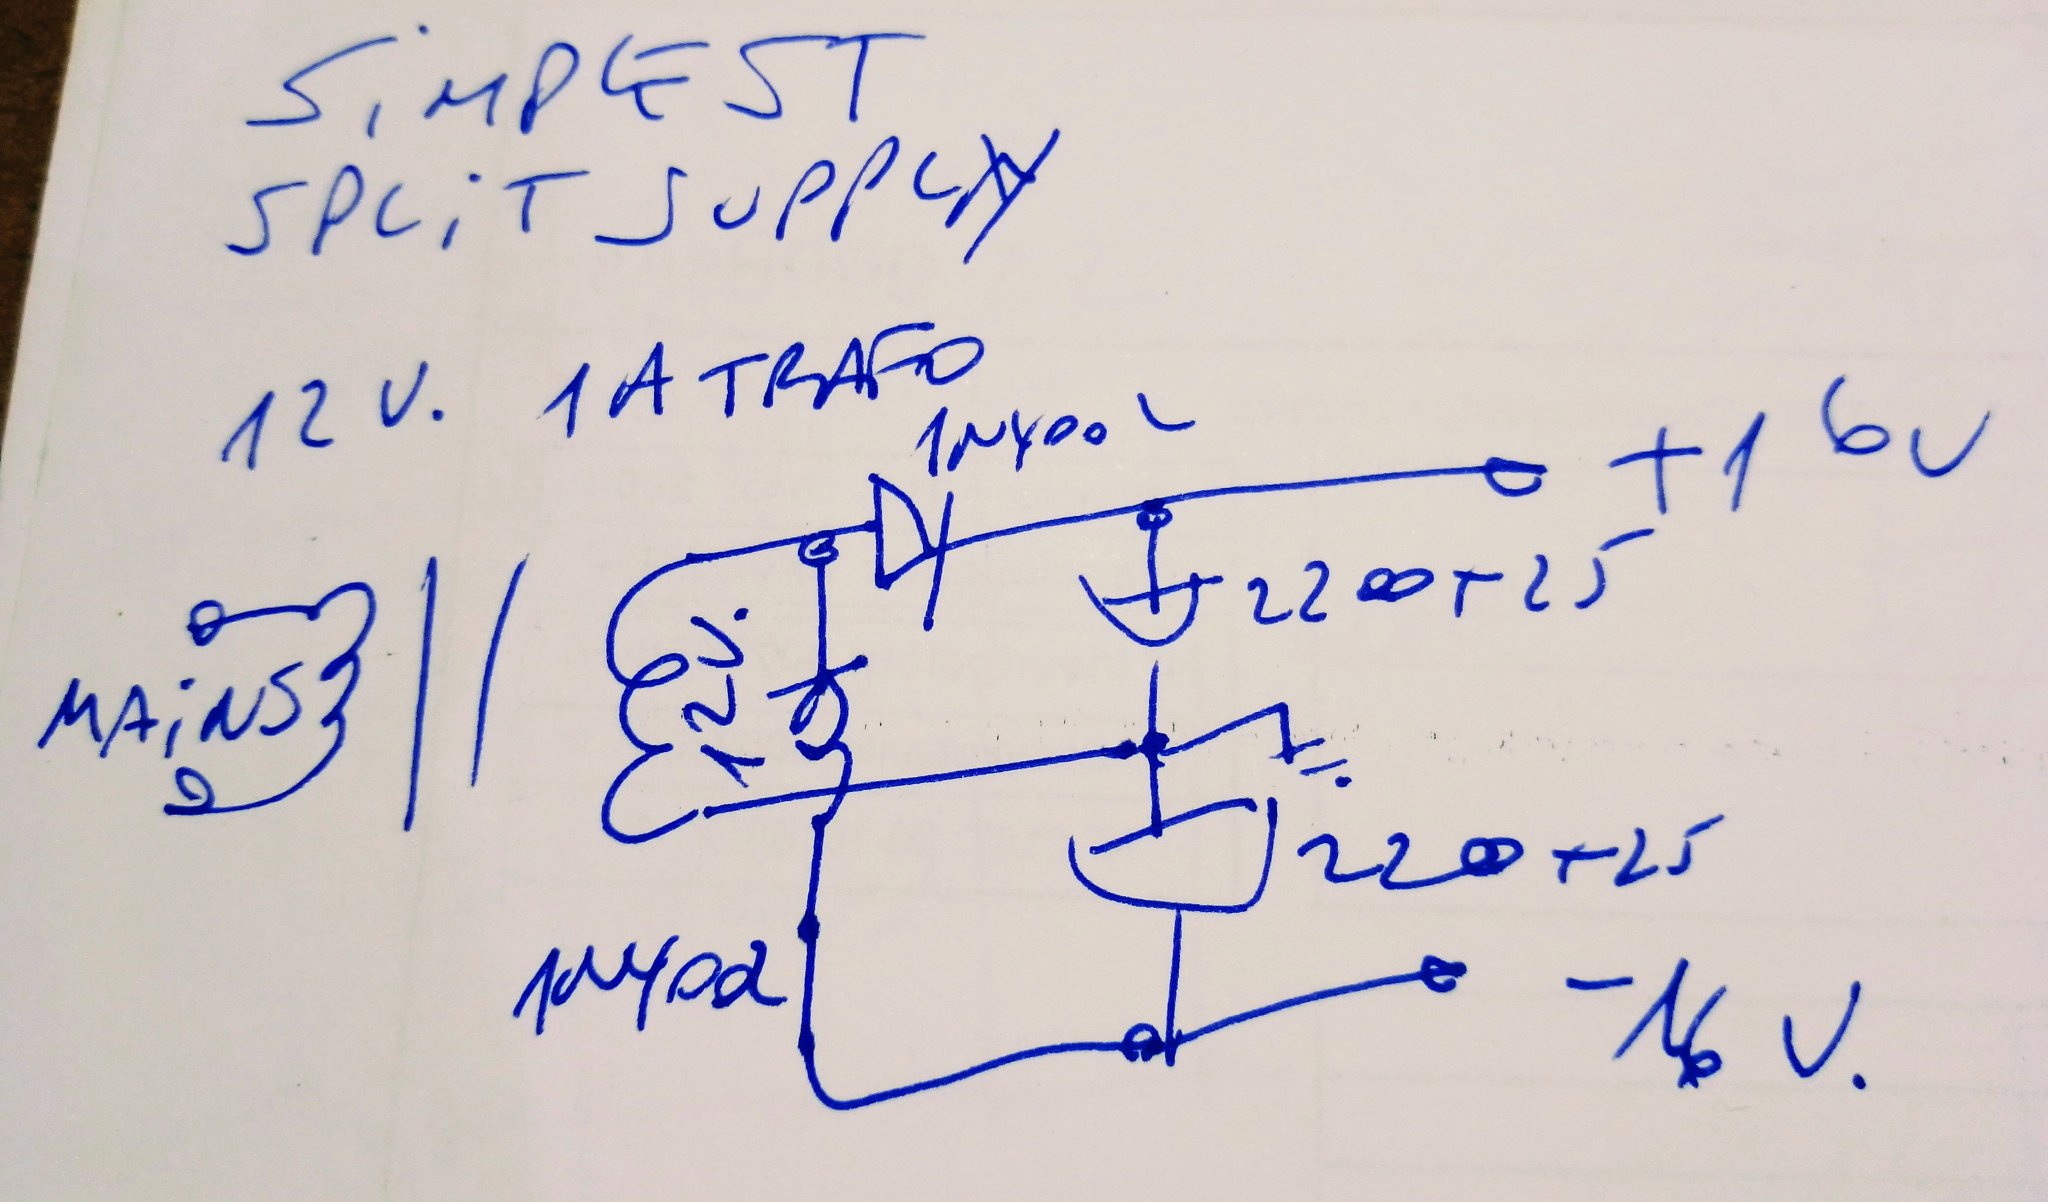 SiMPLEST
SPLiT SUPPLY
12 V. 1A TRAFO
1N4002
+16V
2200 + 25
12 V.
MAiNS
2200 + 25
1N4002
-16 V.